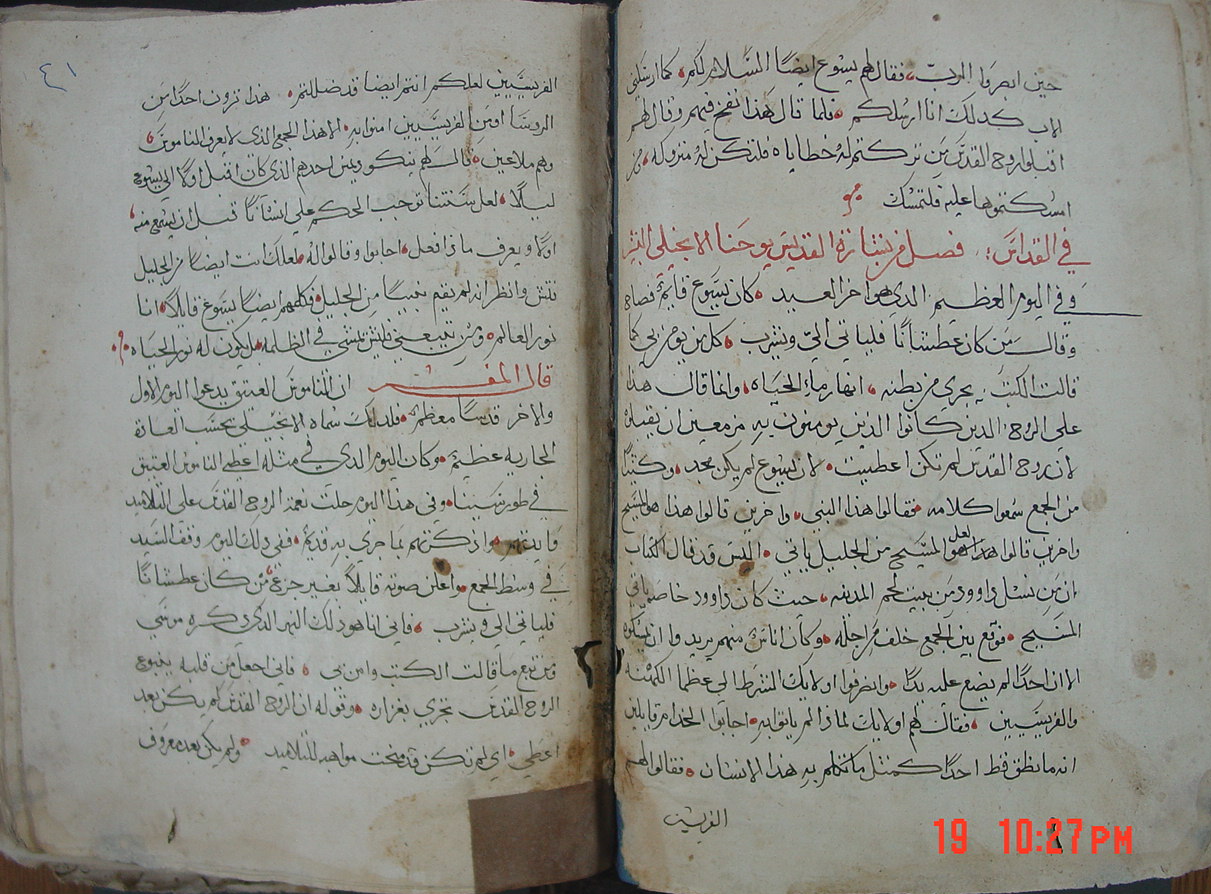 حين ابصروا الربّ، فقال لهم يسوع ايضًا السّلام لكم، كما ارسلني
الاب كذلك انا ارسلكم، فلما قال هذا نفخ فيهم وقال لهم
اقبلوا روح القدس من تركتم له خطاياه فلتكن له متروكه، ومن
امسكتموها عليه فلتمسك
في القداس؛ فصل من بشارة القديس يوحنا الانجيلي البشير
وفي اليوم العظيم الذي هو اخر العيد، كان يسوع قايمٌ فصاح
وقال من كان عطشانًا فلياتي اليّ ويشرب، كل من يومن بي كما
قالت الكتب، يجري من بطنه، انهار ماء الحياه، وانما قال هذا
على الروح، الذين كانوا الذين يومنون به مزمعين ان يقبلوه
لان روح القدس لم تكن اعطيت، لان يسوع لم يكن مجد، وكثيرًا
من الجمع سمعوا كلامه فقالوا هذا النبي، واخرين قالوا هذا هو المسيح
واخرين قالوا هذا هو لعل المسيح من الجليل ياتي، اليس قد قال الكتاب
ان من نسل داوود من بيت لحم المدينه، حيث كان داوود خاصه ياتي
المسيح، فوقع بين الجمع خلف من اجله، وكان اناسٌ منهم يريدوا ان يمسكوه
الا ان احدًا لم يضع عليه يدًا، وانصرفوا اولايك الشرط الى عظما الكهنه
والفريسيين، فقال لهم اولايك لماذا لم ياتوا به، اجابوا الخدام قايلين
انه ما نطق قط احدًا كمثل ما تكلم به هذا الانسان، فقالوا لهم
الفريسين
٤١
الفريسيين لعلكم انتم ايضا قد ضللتم، هذا ترون احدًا من
الروسا او من الفريسيين امنوا به، الا هذا الجمع الذي لا يعرف الناموس
وهم ملاعين، قال لهم نيكوديمس احدهم الذي كان اقبل اولًا الى يسوع
ليلًا، لعل سنتنا توجب الحكم على انسانًا قبل ان يسمع منه
اولًا ويعرف ماذا فعل، اجابوا وقالوا له لعلك انت ايضًا من الجليل
فتش وانظر انه لم يقيم نبيًا من الجليل، فكلمهم ايضًا يسوع قايلًا، انا
نور العالم، ومن تبعني فليس يمشي في الظلمه، بل يكون له نور الحياه
قال المفسر ان الناموس العتيق يدعوا اليوم الاول
والاخر قدسًا معظم، فلذلك سماه الانجيلي بحسب العادة
الجاريه عظيم، وكان اليوم الذي في مثله اعطي الناموس العتيق
في طور سينا، وفي هذا اليوم حلت نعمة الروح القدس على التلاميذ
فايدتهم، واذكرتهم بما جرى به قديمًا، ففي ذلك اليوم وقف السيد
في وسط الجمع واعلن صوته قايلًا بغير جزع، من كان عطشانًا
فلياتي الي ويشرب، فاني انا هو ذلك النهر الذي ذكره موسى
ومن تبع ما قالت الكتب وامن بي، فاني اجعل من قلبه ينبوع
الروح القدس تجري بغزاره، وقوله ان الروح القدس لم يكن بعد
اعطي، اي لم تكن قد منحت مواهبه للتلاميذ، ولم يكن بعد معروف
19 10:27PM